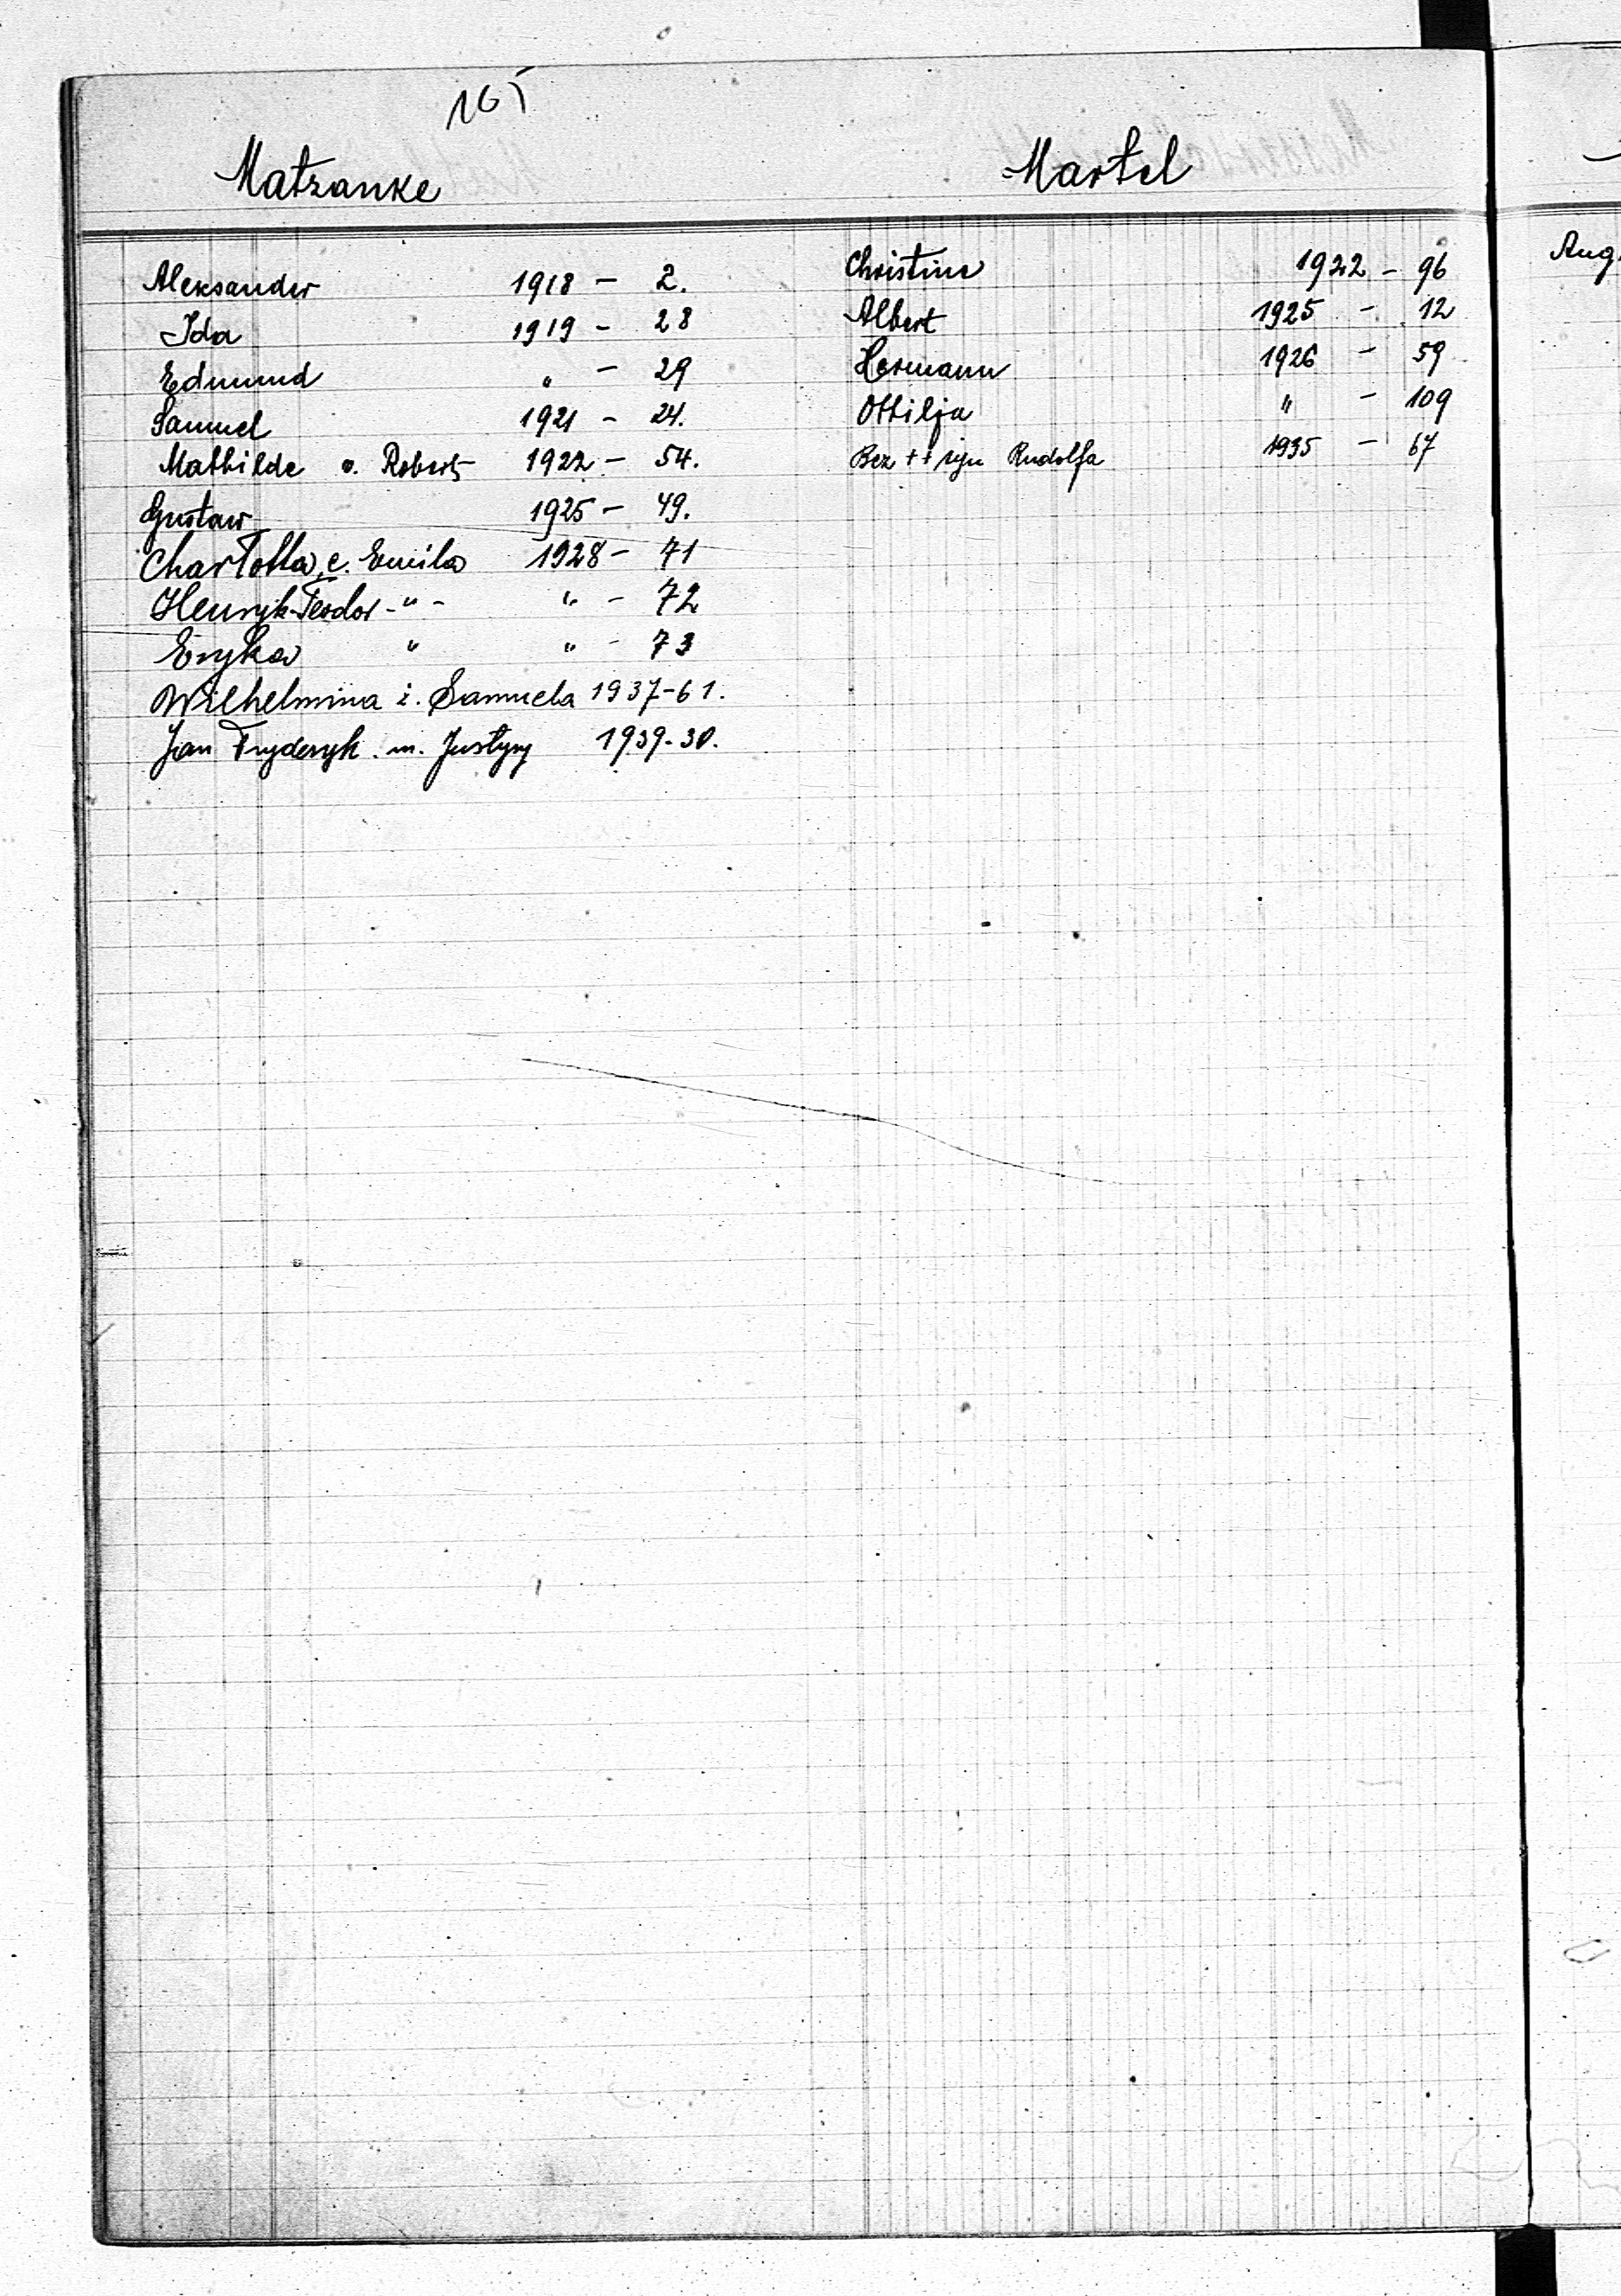 165
Matzanke
Aleksander 1918 - 2.
Ida 1919 - 28
Edmund " - 29
Samuel 1921 - 24.
Mathilde v. Robert 1922 - 54.
Gustaw 1925 - 49.
Charlotta c. Emila 1928 - 71
Henryk-Teodor -"- " - 72
Eryka " " - 73
Wilhelmina ż. Samuela 1937-61.
Jan Fryderyk m. Justyny 1939-30.
Martel
Christine 1922 - 96
Albert 1925 - 12
Hermann 1926 - 59
Ottilja " - 109
Bez ++ Rudolfa 1935 - 67
Aug.